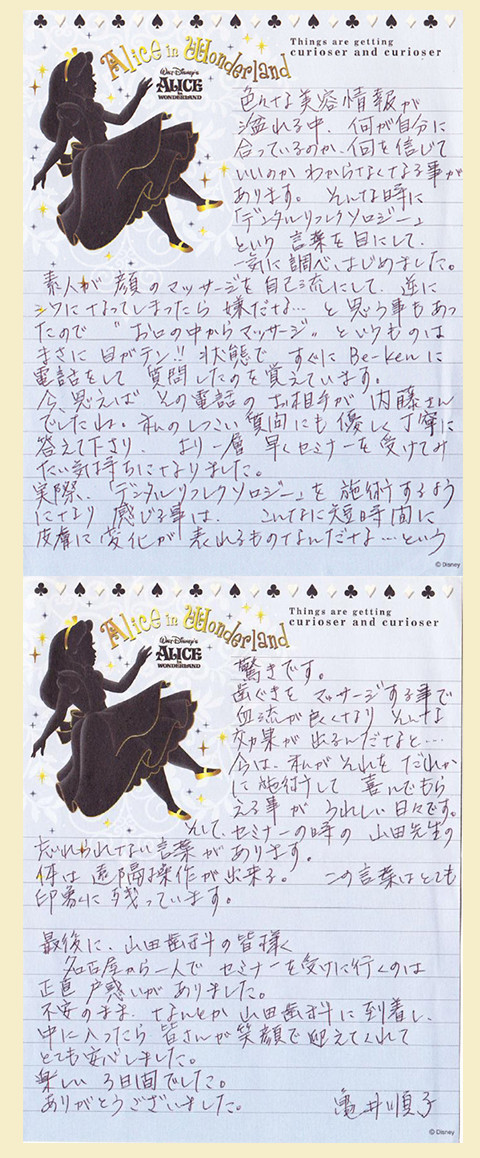 Alice in Wonderland
Things are getting
curioser and curioser
WALT DISNEY'S
ALICE
IN
WONDERLAND
色んな美容情報が
溢れる中、何が自分に
合っているのか、何を信じて
いいのかわからなくなる事が
あります。そんな時に
「デンタルリフレクソロジー」
という言葉を目にして、
一気に調べ、はじめました。
素人が顔のマッサージを自己流にして、逆に
シワになってしまったら嫌だなぁ…と思う事もあっ
たので〝お口の中からマッサージ〟というものは
まさに目がテン!!状態で、すぐにBe-Kenに
電話をして質問したのを覚えています。
今、思えばその電話のお相手が内藤さん
でしたね。私のしつこい質問にも優しく丁寧に
答えて下さり、より一層早くセミナーを受けてみ
たい気持ちになりました。
実際、「デンタルリフレクソロジー」を施術するよう
になり感じる事は、こんなに短時間に
皮膚に変化が表れるものなんだなぁ…という
© Disney
Alice in Wonderland
Things are getting
curioser and curioser
WALT DISNEY'S
ALICE
IN
WONDERLAND
驚きです。
歯ぐきをマッサージする事で
血流が良くなりそんな
効果が出るんだなぁと…
今は、私がそれをだれか
に施術して喜んでもら
える事がうれしい日々です。
そして、セミナーの時の山田先生の
忘れられない言葉があります。
体は遠隔操作が出来る。この言葉はとても
印象に残っています。
最後に、山田歯科の皆様へ
名古屋から一人でセミナーを受けに行くのは
正直戸惑いがありました。
不安のまま、なんとか山田歯科に到着し、
中に入ったら皆さんが笑顔で迎えてくれて
とても安心しました。
楽しい3日間でした。
ありがとうございました。 亀井順子
© Disney